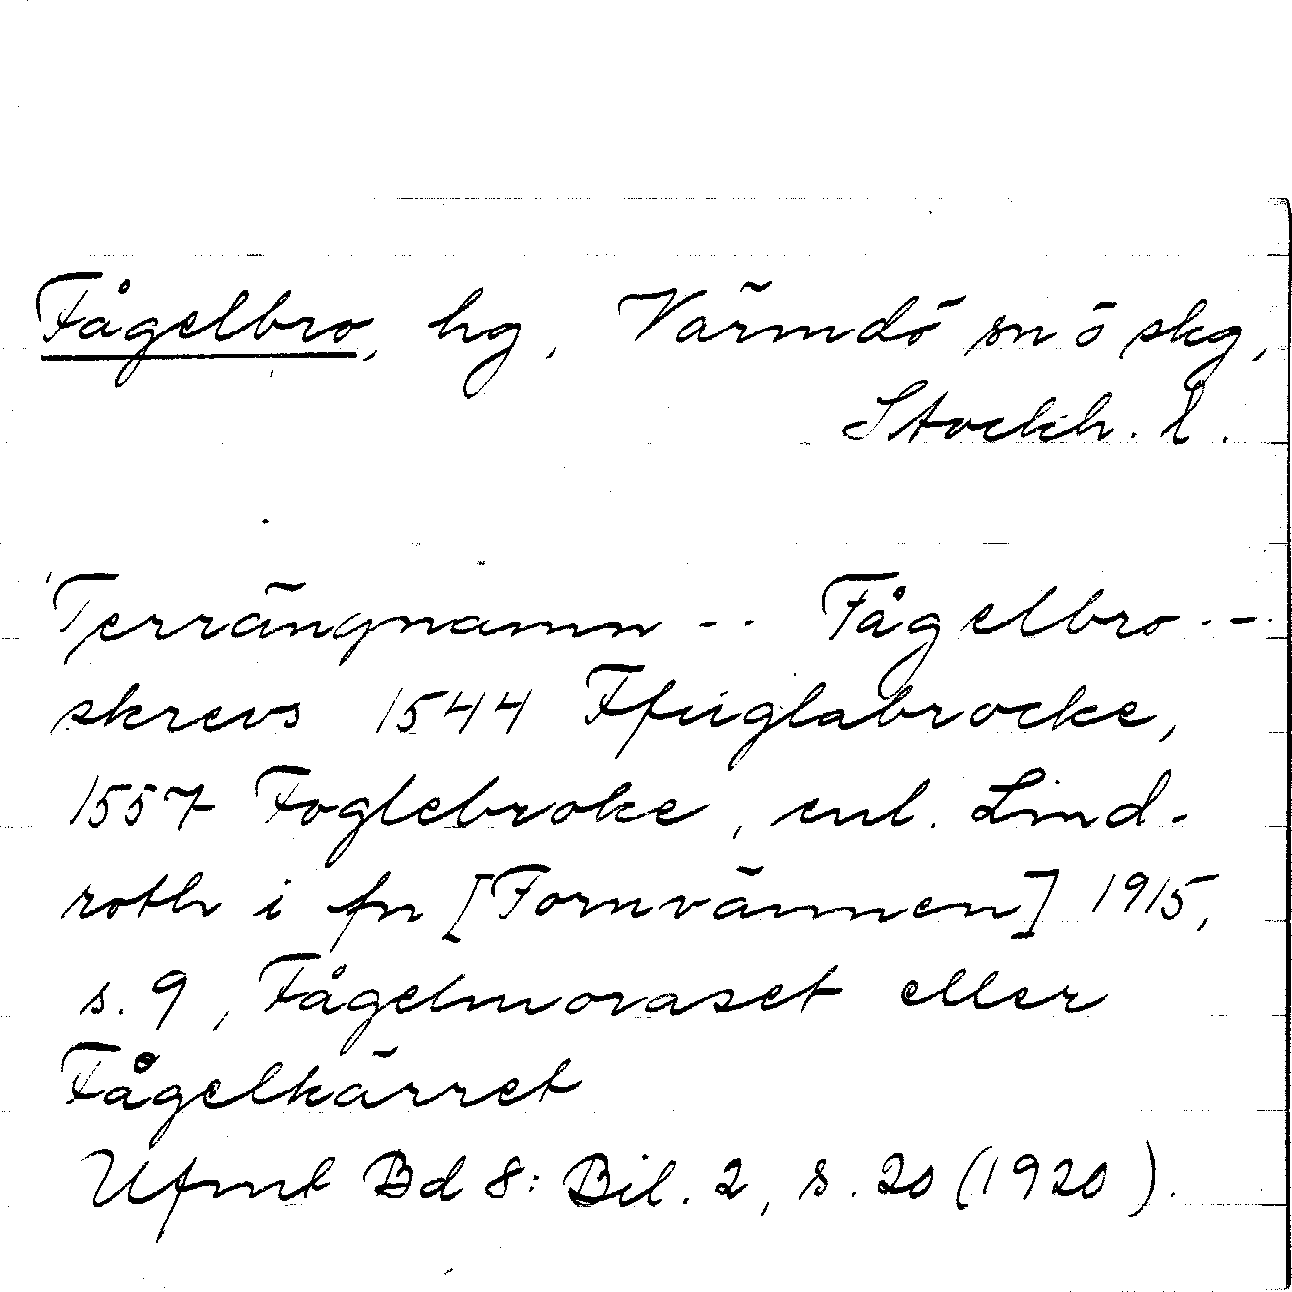 Fågelbro, hg, Värmdö sn o skg,
Stockh. l.
Terrängnamn - - Fågelbro - -
skrevs 1544 Ffuglabrocke,
1557 Foglebroke, enl. Lind-
roth i fn [Fornvännen] 1915,
s. 9, Fågelmoraset eller
Fågelkärret
Ufmt Bd 8: Bil. 2, s. 20 (1920).